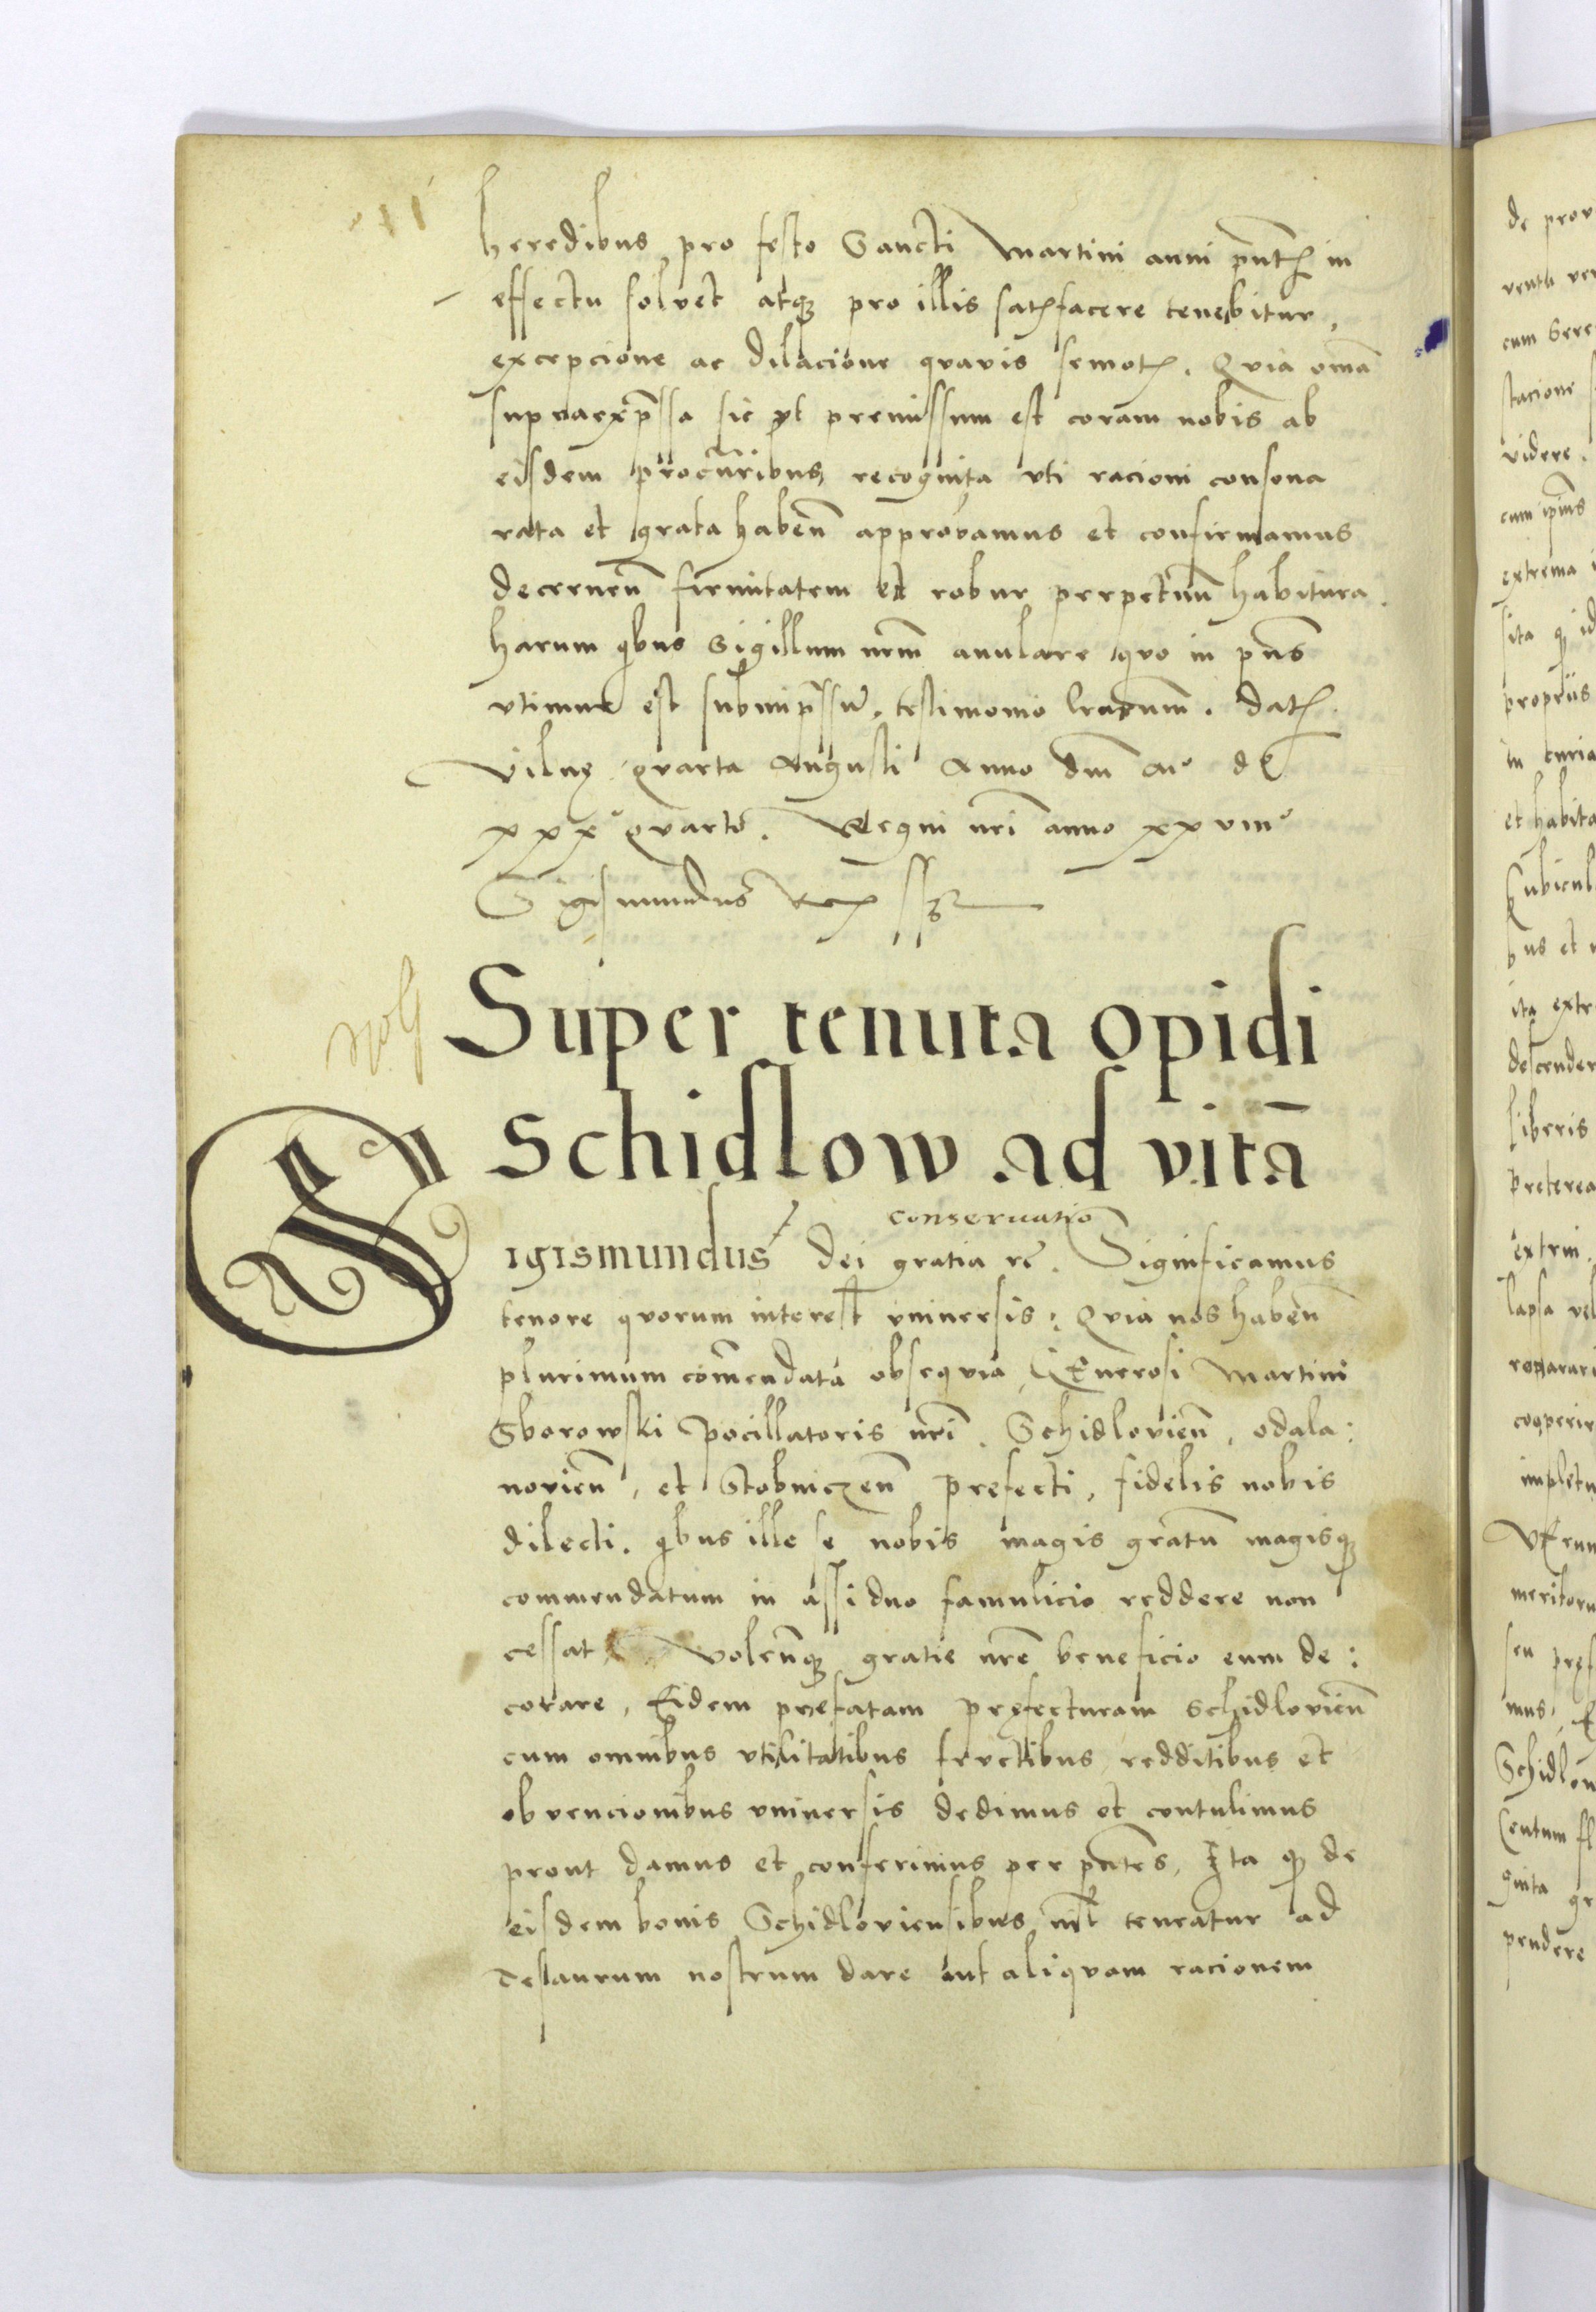 heredibus pro festo Sancti Martini anni pñtꝭ in
effectu solvet atqꝫ pro illis satꝭfacere tenebitur,
excepcione ac dilacione quavis semotꝭ. Quia om̃a
supraexp̃ssa sic vt premissum est coram nobis ab
eisdem procur̃ibus recognita vti racioni consona
rata et grata habeñ approbamus et confirmamus
decerneñ firmitatem et robur perpetuũ habitura.
harum qibus Sigillum nr̃m anulare quo in pñs
vtimur est subimp̃ssũ. testimonio l̃rarum. datꝭ
Vilnę quarta Augusti Anno dm̃ Mº dº
xxxº quarto. Regni nr̃i anno xxviiiº
Sigismundus Rex sszt
Super tenuta opidi
Schidlow ad vitã
conservatio
Sigismundus Dei gratia rc̃. Significamus
tenore quorum interest vniversis: Quia nos habeñ
plurimum com̃endata obsequia, GEnerosi Martini
Sborowski Pocillatoris nr̃i. Schidlovieñ, odala:
novieñ, et Stobniczeñ prefecti, fidelis nobis
dilecti. qibus ille se nobis magis gratũ magisqꝫ
commendatum in assiduo famulicio reddere non
cessat volenˀqꝫ gratie nr̃e beneficio eum de:
corare, Eidem prefatam pręfecturam Schidlovieñ
cum omnibus vtilitatibus fructibus redditibus et
obvencionibus vniversis dedimus et contulimus
prout damus et conferimus per pñtes, Ita qꝫ de
eisdem bonis Schidloviensibus nil teneatur ad
Tesaurum nostrum dare aut aliquam racionem
de prov
cum Sere
stacione
videre.
cum ip̃ius
extrema
sita qꝫ id
propriis
in curia
et habita
Cubicul
ita extr
descender
liberis
preterea
extrin
lapsa vel
cooperir
impletu
meritoru
seu pręf
mus, E
Schidlov
Centum fl
ginta gr
pendere